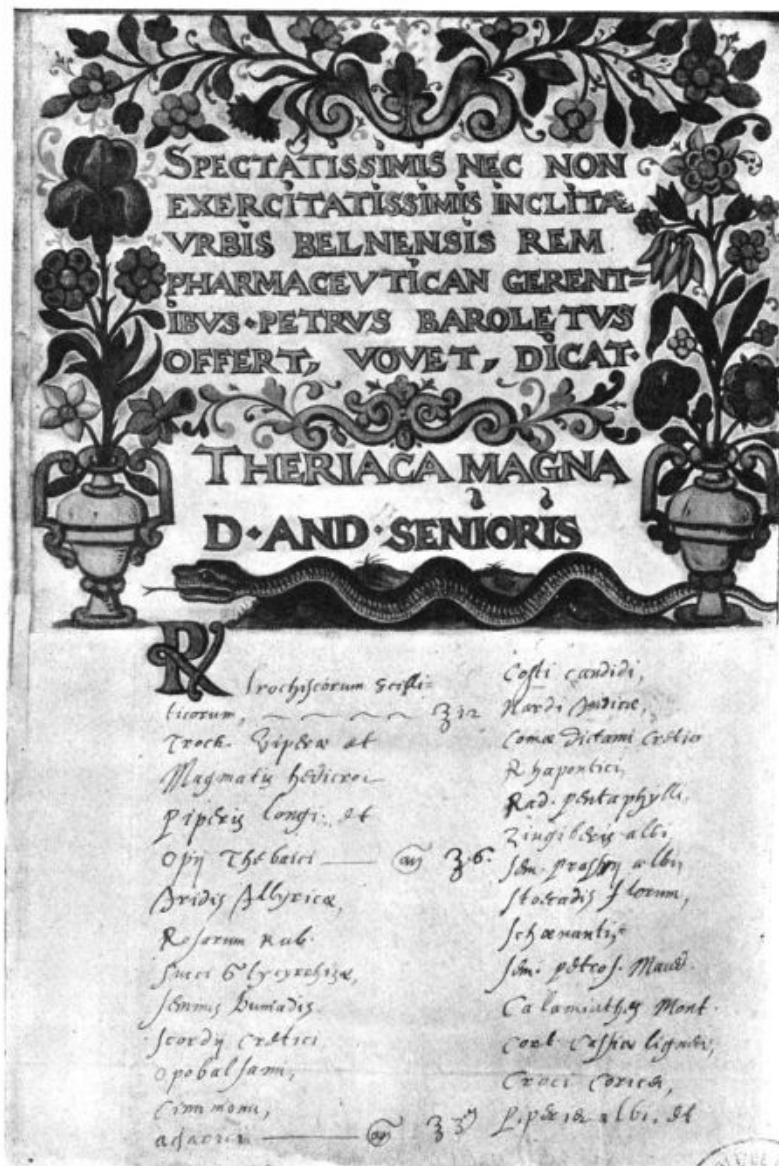 SPECTATISSIMIS NEC NON
EXERCITATISSIMIS INCLITÆ
VRBIS BELNENSIS REM
PHARMACEVTICAN GERENT=
IBVS·PETRVS BAROLETVS
OFFERT, VOVET, DICAT·
THERIACA MAGNA
D·AND·SENIORIS
℞ Trochiscorum scilli=
ticorum, ʒ 12
Troch. Viperæ et
Magmatis hedicroi
Piperis longi. et
Opij Thebaici añ ʒ.6.
Iridis Illyricæ,
Rosarum Rub.
Succi Glycyrrhizæ,
Seminis buniadis.
Scordij Cretici
Opobalsami,
Cinnmomi,
agarici añ ʒ
Costi candidi,
Nardi Indicæ,
Comæ Dictami Cretici
Rhapontici,
Rad. pentaphylli,
Zingiberis albi
Sem. prassij albi,
Stoecadis florum,
Schœnantis
Sem. petros. Maced.
Calaminthes Mont.
Cort. Cassiæ ligneæ,
Croci Coricei,
Piperis albi. et